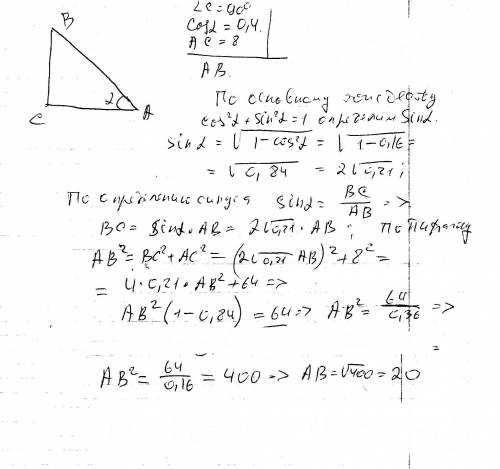 B
C
α
A
∠C = 90°
Cosα = 0,4.
AC = 8
AB.
По основному тождеству
cos²α + sin²α = 1 определим Sinα.
sinα = √1-cos²α = √1-0,16 =
= √0,84 = 2√0,21;
По определению синуса Sinα = BC/AB =>
BC = Sinα·AB = 2√0,21·AB; по Пифагору
AB² = BC² + AC² = (2√0,21 AB)² + 8² =
= 4·0,21·AB² + 64 =>
AB²(1-0,84) = 64 => AB² = 64/0,36 =>
=
AB² = 64/0,16 = 400 => AB = √400 = 20